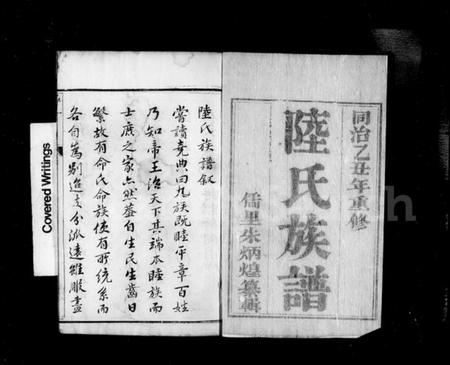 同治乙丑年重修
陸氏族譜
儒里朱炳煌纂輯
陸氏族譜叙
嘗讀堯典曰九族既睦平章百姓
乃知帝王治天下其端本睦族而
士庶之家亦然蓋自生民生齒日
繁故有命氏命族俾有所統系而
各自為别迨支分派遠雖服盡
Covered Writings